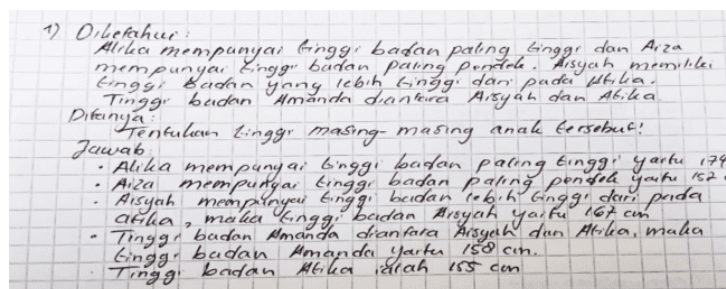 1) Diketahui :
Alika mempunyai tinggi badan paling tinggi dan Aiza
mempunyai tinggi badan paling pendek. Aisyah memiliki
tinggi badan yang lebih tinggi dari pada Atika.
Tinggi badan Amanda diantara Aisyah dan Atika
Ditanya :
Tentukan tinggi masing-masing anak tersebut!
Jawab :
• Alika mempunyai tinggi badan paling tinggi yaitu 174
• Aiza mempunyai tinggi badan paling pendek yaitu 152
• Aisyah mempunyai tinggi badan lebih tinggi dari pada
atika, maka tinggi badan Aisyah yaitu 167 cm
• Tinggi badan Amanda diantara Aisyah dan Atika, maka
tinggi badan Amanda yaitu 158 cm.
• Tinggi badan Atika ialah 155 cm